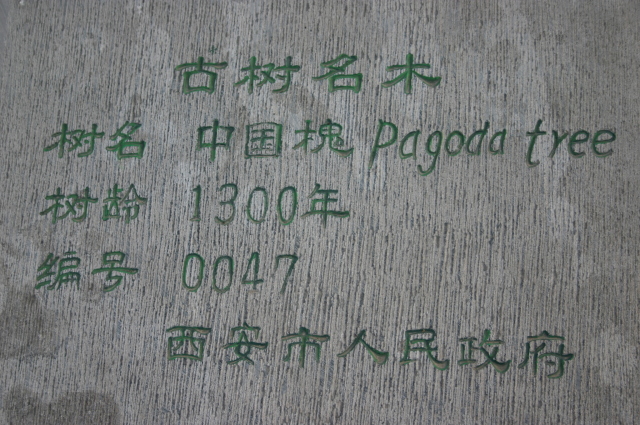 古树名木
树名 中国槐 Pagoda tree
树龄 1300年
编号 0047
西安市人民政府